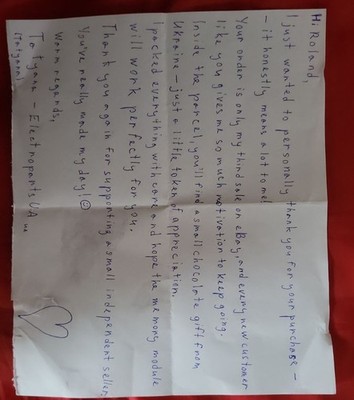 Hi Roland,
I just wanted to personally thank you for your purchase -
- it honestly means a lot to me!
Your order is only my third sale on eBay, and every new customer
like you gives me so much motivation to keep going.
Inside the parcel, you'll find a small chocolate gift from
Ukraine - just a little token of appreciation.
I packed everything with care and hope the memory module
will work perfectly for you.
Thank you again for supporting a small independent seller,
You've really made my day! ☺
Warm regards,
Tetyana - Elektropart-UA
(Tetyana)